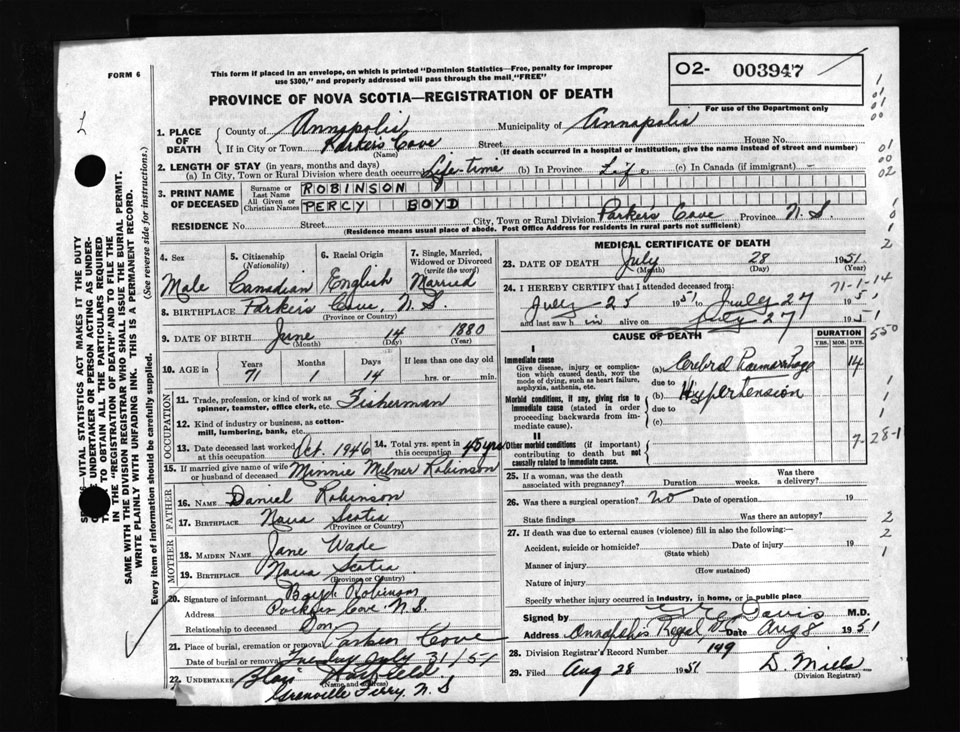 FORM 6
This form if placed in an envelope, on which is printed "Dominion Statistics—Free, penalty for improper
use $300," and properly addressed will pass through the mail, "FREE"
O2- 003947
For use of the Department only
PROVINCE OF NOVA SCOTIA—REGISTRATION OF DEATH
1. PLACE OF DEATH
County of Annapolis Municipality of Annapolis
If in City or Town Parker's Cove Street House No.
(Name) (If death occurred in a hospital or institution, give the name instead of street and number)
2. LENGTH OF STAY (in years, months and days)
(a) In City, Town or Rural Division where death occurred Life-time (b) In Province Life (c) In Canada (if immigrant) —
3. PRINT NAME OF DECEASED
Surname or Last Name ROBINSON
All Given or Christian Names PERCY BOYD
RESIDENCE No. Street City, Town or Rural Division Parker's Cove Province N.S.
(Residence means usual place of abode. Post Office Address for residents in rural parts not sufficient)
4. Sex
Male
5. Citizenship (Nationality)
Canadian
6. Racial Origin
English
7. Single, Married, Widowed or Divorced (write the word)
Married
8. BIRTHPLACE Parker's Cove, N.S.
(Province or Country)
9. DATE OF BIRTH June 14 1880
(Month) (Day) (Year)
10. AGE in Years Months Days If less than one day old
71 1 14 hrs. or min.
OCCUPATION
11. Trade, profession, or kind of work as spinner, teamster, office clerk, etc. Fisherman
12. Kind of industry or business, as cotton-mill, lumbering, bank, etc.
13. Date deceased last worked at this occupation Oct. 1946
14. Total yrs. spent in this occupation 45 yrs
15. If married give name of wife or husband of deceased Minnie Milner Robinson
FATHER
16. NAME Daniel Robinson
17. BIRTHPLACE Nova Scotia
(Province or Country)
MOTHER
18. MAIDEN NAME Jane Wade
19. BIRTHPLACE Nova Scotia
(Province or Country)
20. Signature of informant Robinson
Address Parkers Cove N.S.
Relationship to deceased Son
21. Place of burial, cremation or removal Parkers Cove
Date of burial or removal Tuesday July 31/51
22. UNDERTAKER
Granville Ferry, N.S
MEDICAL CERTIFICATE OF DEATH
23. DATE OF DEATH July 28 1951
(Month) (Day) (Year)
24. I HEREBY CERTIFY that I attended deceased from:
71-1-14
July 25 1951 to July 27 1951
and last saw h im alive on July 27 1951
CAUSE OF DEATH
DURATION
YRS. MOS. DYS.
I
Immediate cause
Give disease, injury or complication which caused death, not the mode of dying, such as heart failure, asphyxia, asthenia, etc.
(a) Cerebral Haemorrhage 14
due to
Morbid conditions, if any, giving rise to immediate cause (stated in order proceeding backwards from immediate cause).
(b) Hypertension
due to
(c)
II
Other morbid conditions (if important) contributing to death but not causally related to immediate cause.
7-28-1
25. If a woman, was the death associated with pregnancy? Duration weeks. Was there a delivery?
26. Was there a surgical operation? No Date of operation 19
State findings Was there an autopsy?
27. If death was due to external causes (violence) fill in also the following:—
Accident, suicide or homicide? Date of injury 19
(State which)
Manner of injury
(How sustained)
Nature of injury
Specify whether injury occurred in industry, in home, or in public place
Signed by Davis M.D.
Address Annapolis Royal NS Date Aug 8 1951
28. Division Registrar's Record Number 149
29. Filed Aug 28 1951 D. Mills
(Division Registrar)
VITAL STATISTICS ACT MAKES IT THE DUTY
UNDERTAKER OR PERSON ACTING AS UNDER-
TO OBTAIN ALL THE PARTICULARS REQUIRED
IN THE "REGISTRATION OF DEATH" AND TO FILE THE
SAME WITH THE DIVISION REGISTRAR WHO SHALL ISSUE THE BURIAL PERMIT.
WRITE PLAINLY WITH UNFADING INK. THIS IS A PERMANENT RECORD.
Every item of information should be carefully supplied. (See reverse side for instructions.)